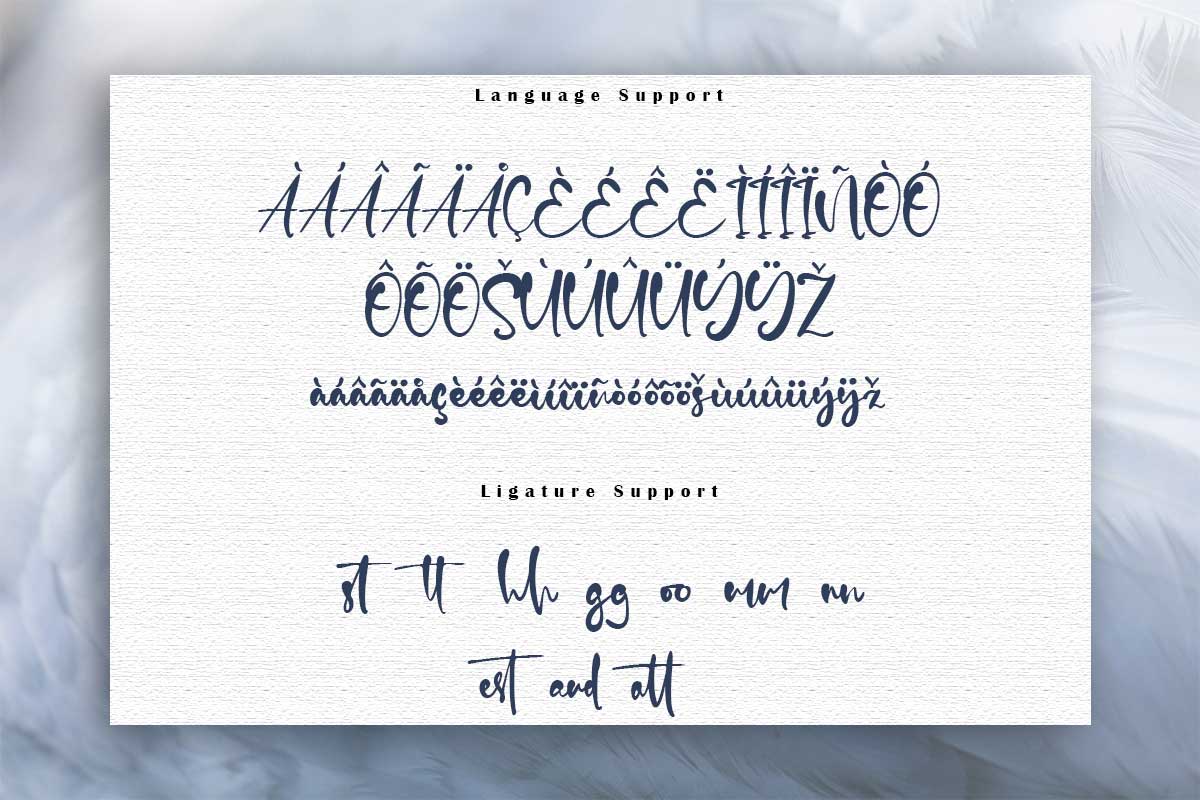 Language Support
ÀÁÂÃÄÅÇÈÉÊËÌÍÎÏÑÒÓ
ÔÕÖŠÙÚÛÜÝŸŽ
àáâãäåçèéêëìíîïñòóôõöšùúûüýÿž
Ligature Support
st tt hh gg oo mm nn
est and att